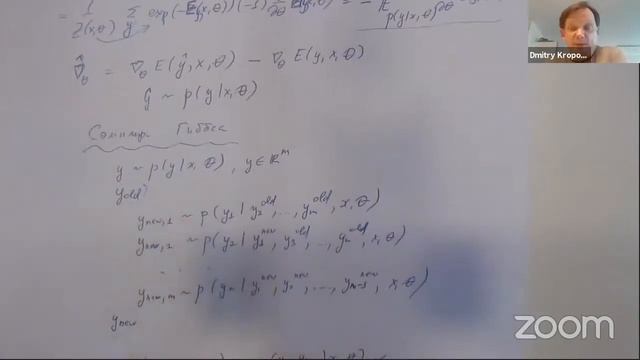 = 1/Z(x,θ) Σ_y exp(-E(y,x,θ)) (-1) ∂/∂θ E(y,x,θ) = - E_{p(y|x,θ)} ∂/∂θ
Dmitry Kropo...
∇̂_θ = ∇_θ E(ŷ,x,θ) - ∇_θ E(y,x,θ)
ŷ ~ p(y|x,θ)
Сэмплир Гиббса
y ~ p(y|x,θ), y∈ℝ^m
y_old
y_new,1 ~ p(y_1 | y_2^old, ..., y_m^old, x,θ)
y_new,2 ~ p(y_2 | y_1^new, y_3^old, .., y_m^old, x,θ)
. . .
y_new,m ~ p(y_m | y_1^new, y_2^new, ..., y_{m-1}^new, x,θ)
y_new
zoom